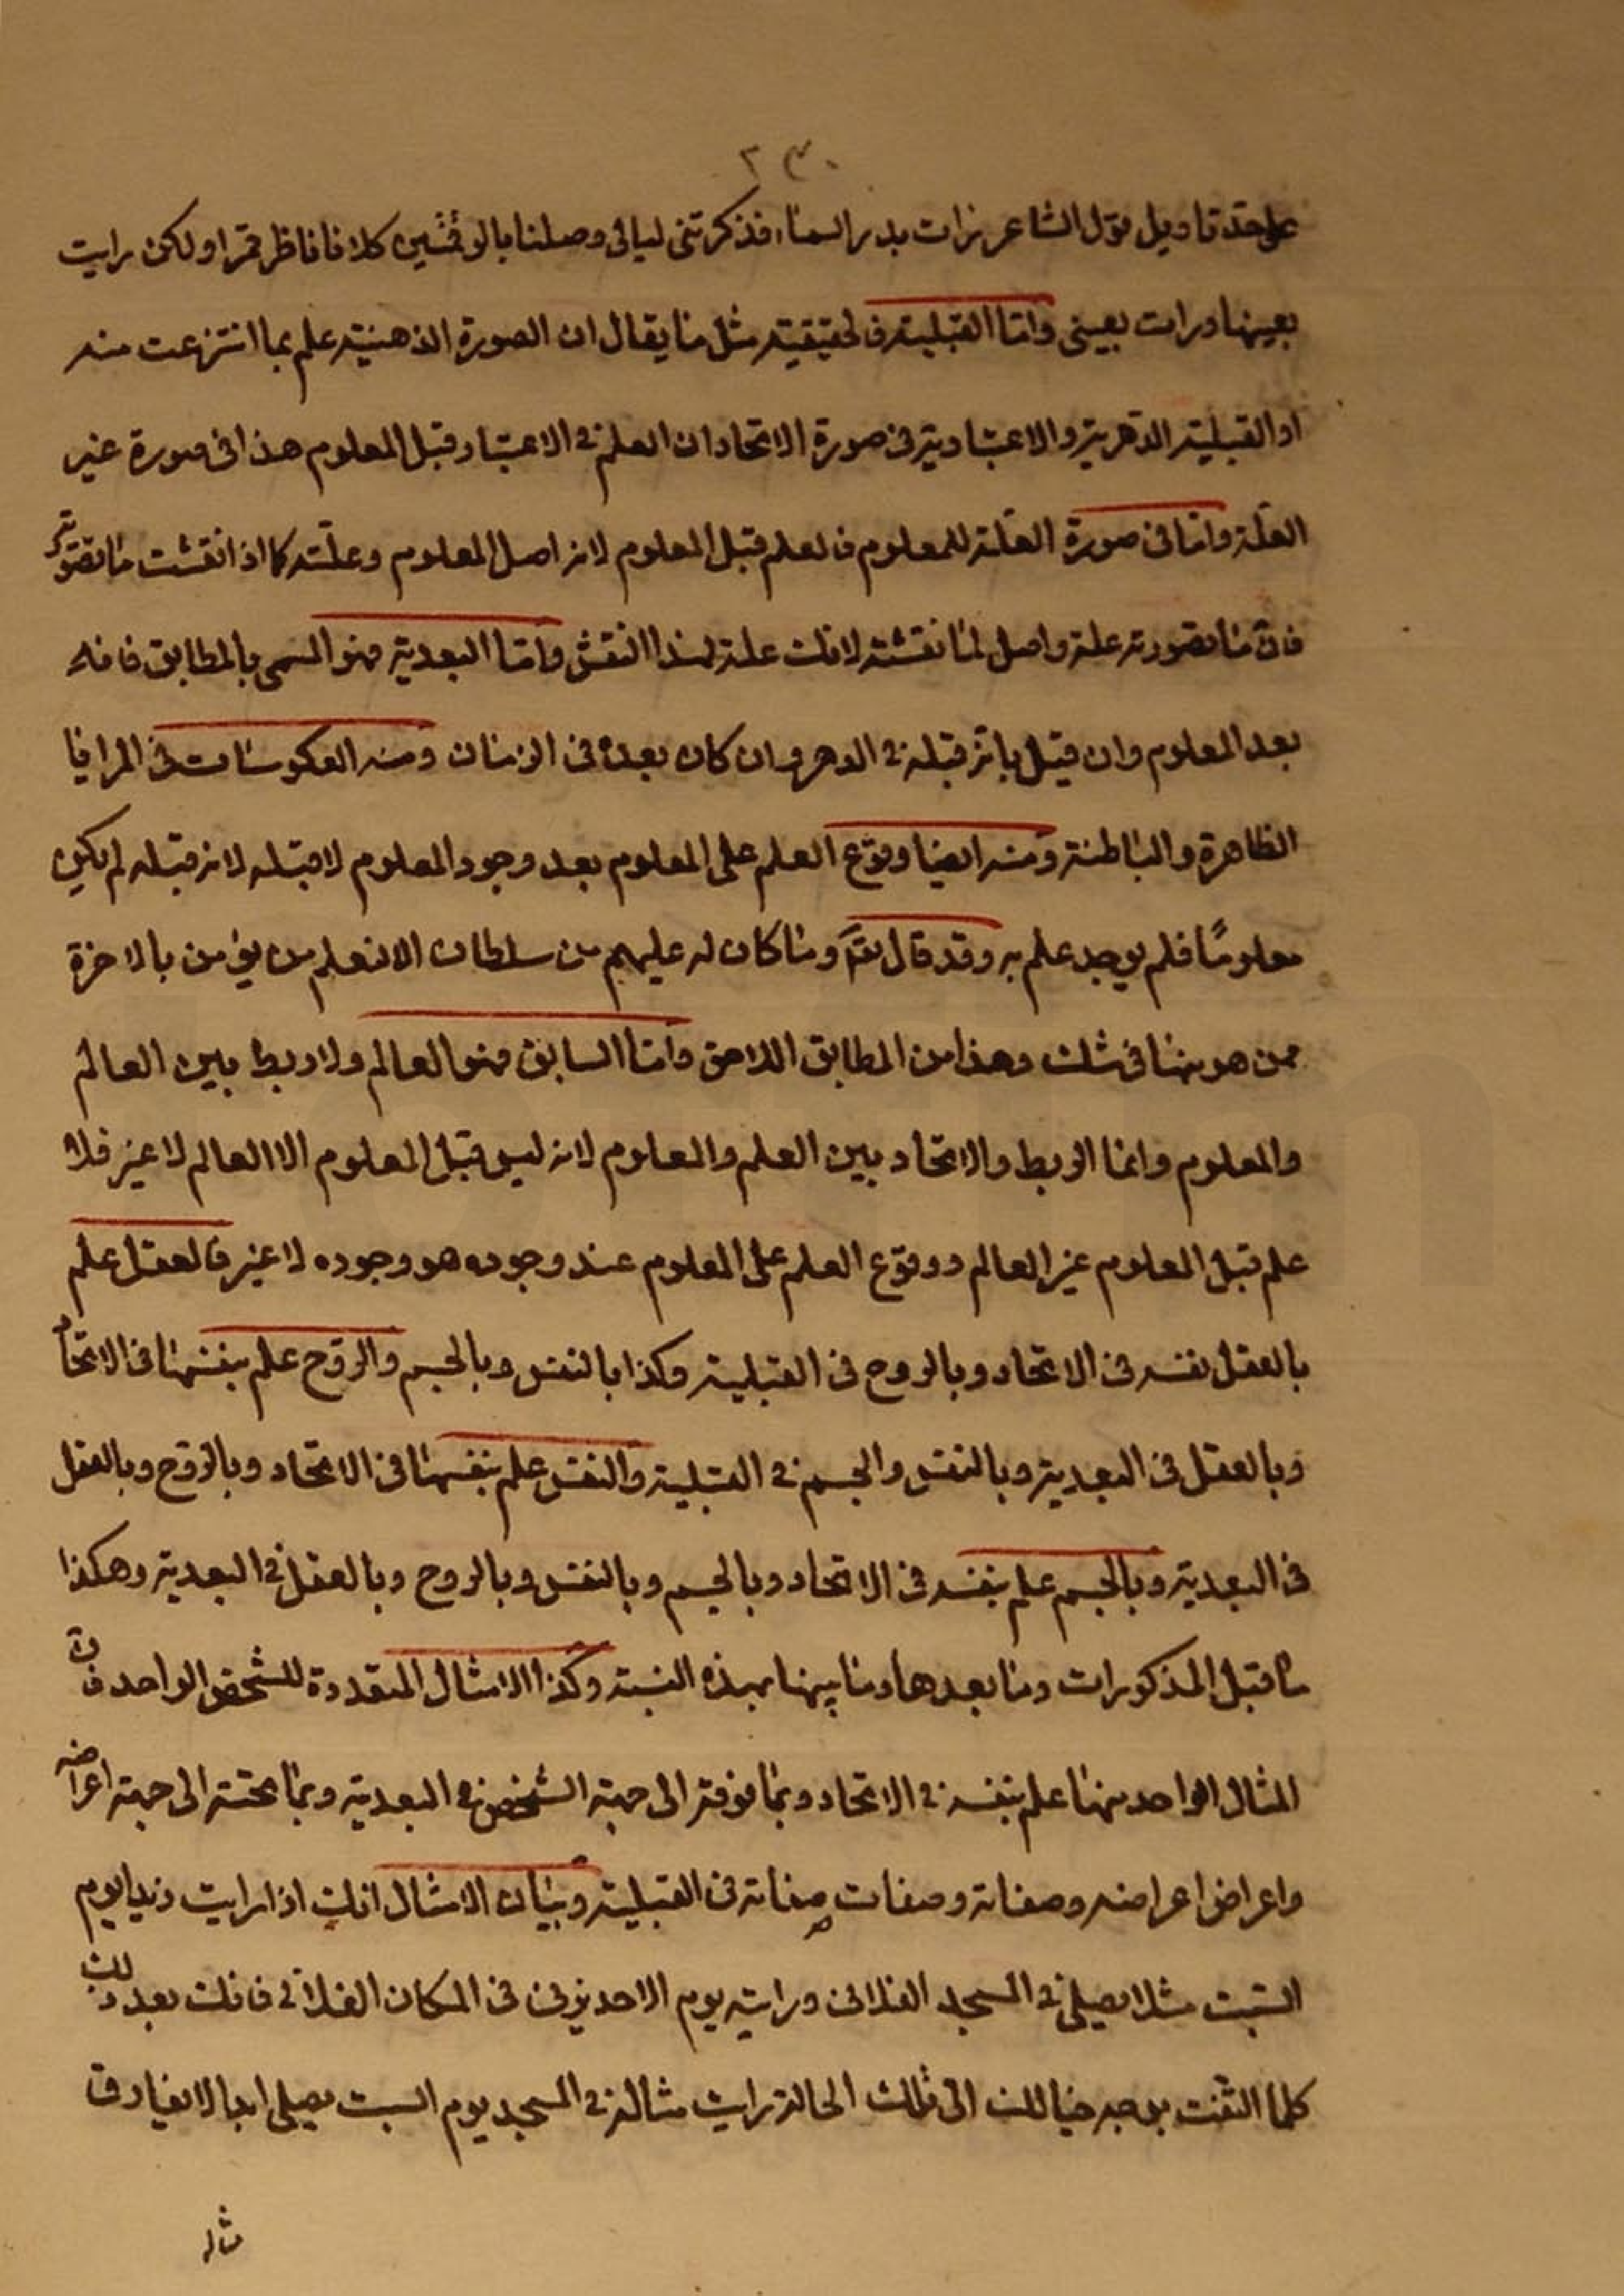 ٢٣٠
على حدّ تاويل قول الشاعر رات بدر السماء فذكرتنى ليالى وصلنا بالرقمتين كلانا ناظر قمرا ولكن رايت
بعينها ورات بعينى وامّا القبلية فالحقيقية مثل ما يقال ان الصورة الذهنية علم بما انتزعت منه
او القبلية الدهرية والاعتبارية فى صورة الاتحاد ان العلم فى الاعتبار قبل المعلوم هذا فى صورة غير
العلّة وامّا فى صورة العلّة للمعلوم فالعلم قبل المعلوم لانه اصل المعلوم وعلّته كما اذا نقشت ما تصوّرته
فانّ ما تصورته علة واصل لما نقشته لانك علة لهذا النقش وامّا البعدية فهو المسمى بالمطابق فانه
بعد المعلوم وان قيل بانه قبله فى الدهر وان كان بعده فى الزمان ومنه العكوسات فى المرايا
الظاهرة والباطنة ومنه ايضا وقوع العلم على المعلوم بعد وجود المعلوم لا قبله لانه قبله لم يكن
معلومًا فلم يوجد علم به وقد قال تعَ وما كان له عليهم من سلطان الا لنعلم من يؤمن بالاخرة
ممن هو منها فى شك وهذا من المطابق اللاحق وامّا السابق فهو العالم ولا ربط بين العالم
والمعلوم وانما الربط والاتحاد بين العلم والمعلوم لانه ليس قبل المعلوم الا العالم لا غير فلا
علم قبل المعلوم غير العالم ووقوع العلم على المعلوم عند وجوده هو وجوده لا غير فالعقل علم
بالعقل نفسه فى الاتحاد وبالروح فى القبلية وكذا بالنفس وبالجسم والروح علم بنفسها فى الاتحاد
وبالعقل فى البعدية وبالنفس والجسم فى القبلية والنفس علم بنفسها فى الاتحاد وبالروح وبالعقل
فى البعدية وبالجسم علم بنفسه فى الاتحاد وبالجسم وبالنفس وبالروح وبالعقل فى البعدية وهكذا
ما قبل المذكورات وما بعدها وما بينها بهذه النسبة وكذا الامثال المتعددة للشخص الواحد فان
المثال الواحد منها علم بنفسه فى الاتحاد وبما فوقه الى جهة الشخص فى البعدية وبما تحته الى جهة اعراضه
واعراض اعراضه وصفاته وصفات صفاته فى القبلية وبيان الامثال انك اذا رايت زيدا يوم
السّبت مثلا يصلى فى المسجد الفلانى ورايته يوم الاحد يزنى فى المكان الفلانى فانك بعد ذلك
كلما التفت بوجه خيالك الى تلك الحالة رايت مثاله فى المسجد يوم السبت يصلى ابدا لا يفارق